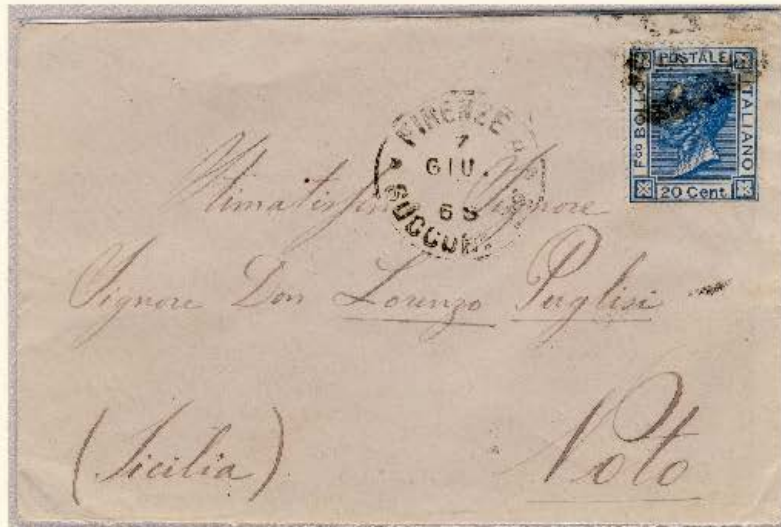 POSTALE
Fco BOLLO
ITALIANO
20 Cent
FIRENZE
7
GIU.
68
SUCCURS
Stimatissimo Signore
Signore Don Lorenzo Puglisi
(Sicilia) Noto